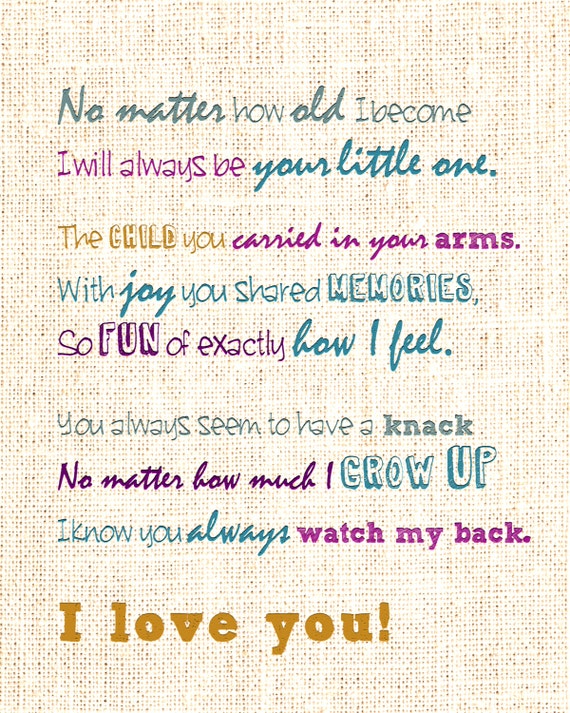 No matter how old I become
I will always be your little one.
The CHILD you carried in your arms.
With joy you shared MEMORIES,
So FUN of exactly how I feel.
You always seem to have a knack
No matter how much I GROW UP
I know you always watch my back.
I love you!